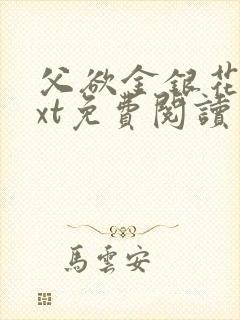 父欲金銀花
xt免費閱讀
馬雲安